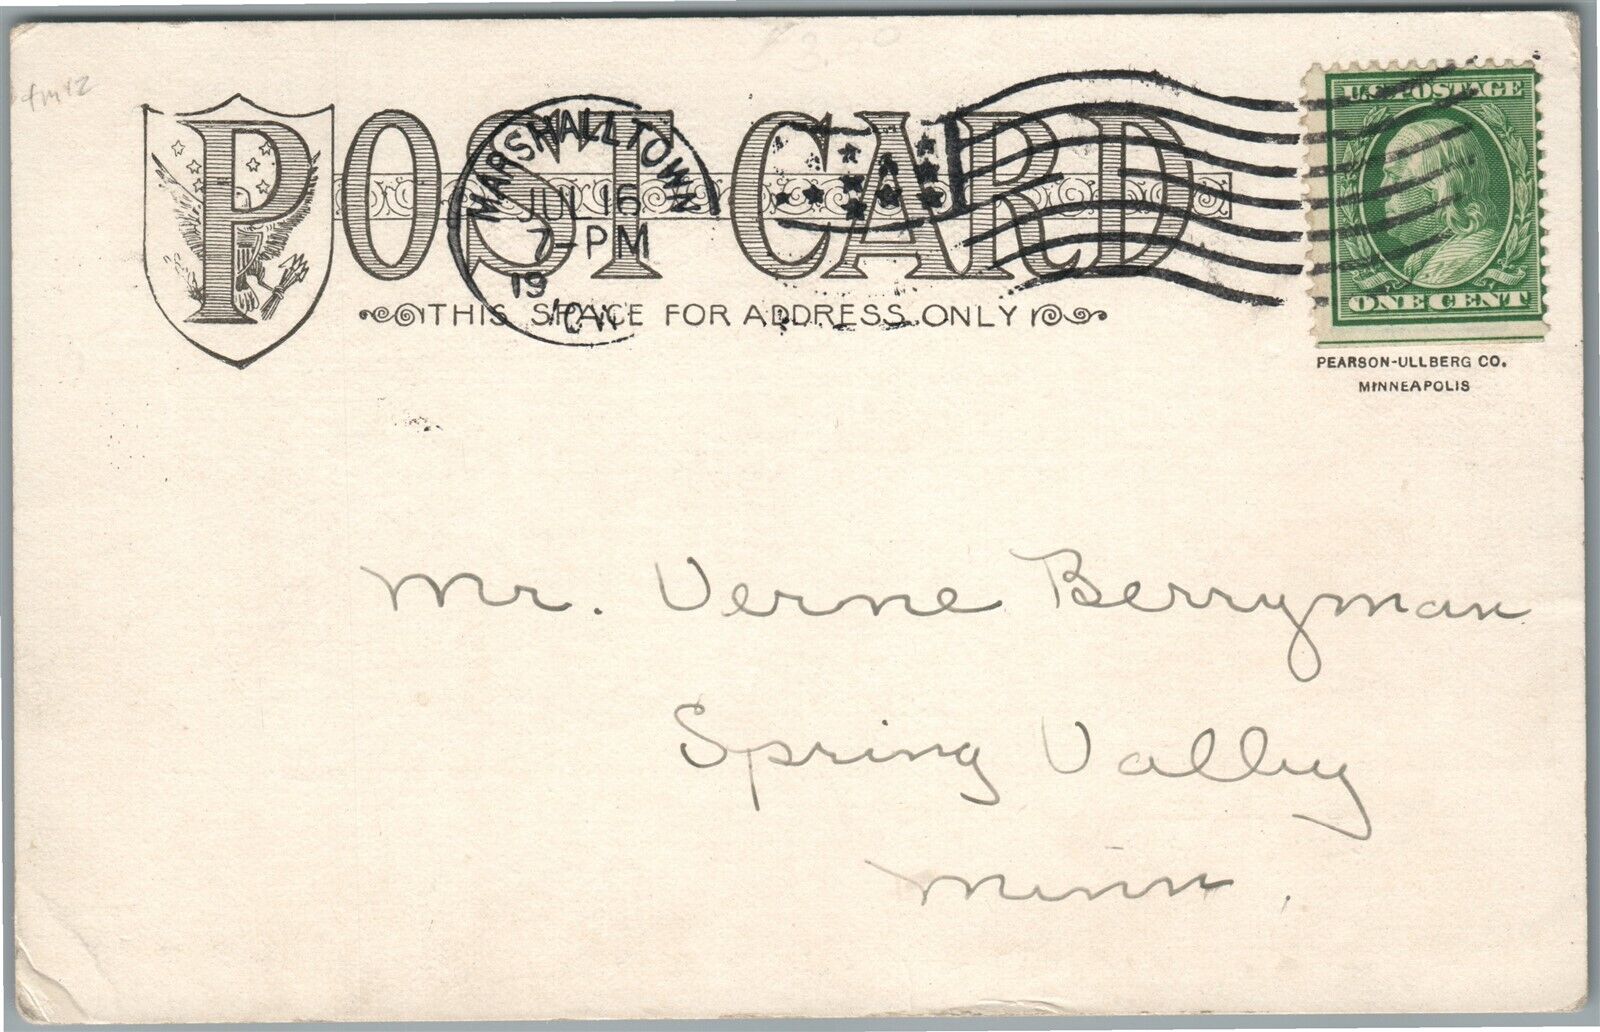 POST CARD
THIS SPACE FOR ADDRESS ONLY
MARSHALLTOWN
JUL 16
7-PM
19
U.S. POSTAGE
ONE CENT
PEARSON-ULLBERG CO.
MINNEAPOLIS
Mr. Verne Berryman
Spring Valley
Minn.